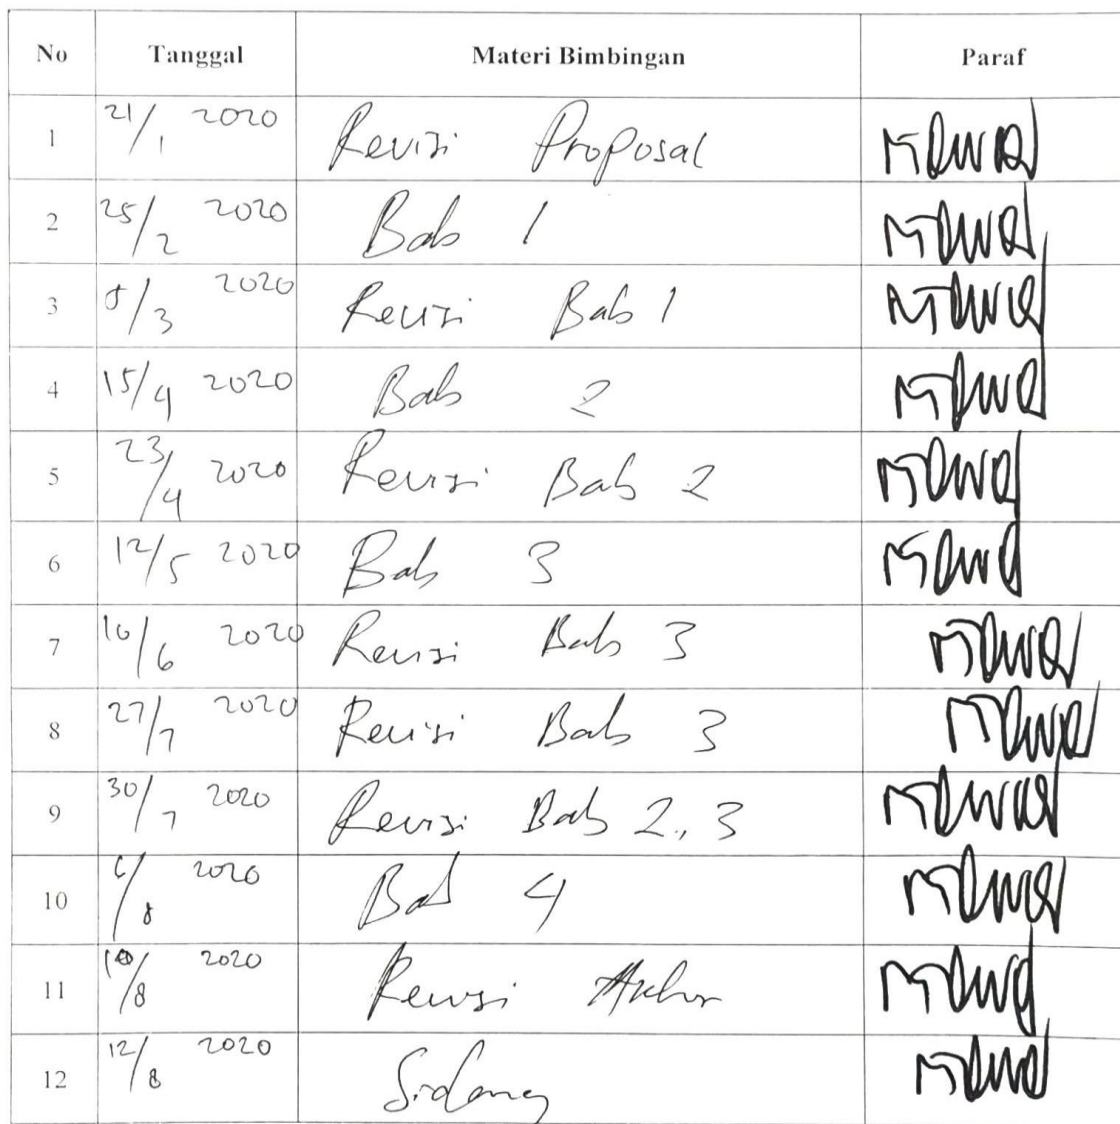 No Tanggal Materi Bimbingan Paraf
1 21/1 2020 Revisi Proposal
2 25/2 2020 Bab 1
3 8/3 2020 Revisi Bab 1
4 15/4 2020 Bab 2
5 23/4 2020 Revisi Bab 2
6 12/5 2020 Bab 3
7 16/6 2020 Revisi Bab 3
8 27/7 2020 Revisi Bab 3
9 30/7 2020 Revisi Bab 2, 3
10 6/8 2020 Bab 4
11 10/8 2020 Revisi Akhir
12 12/8 2020 Sidang